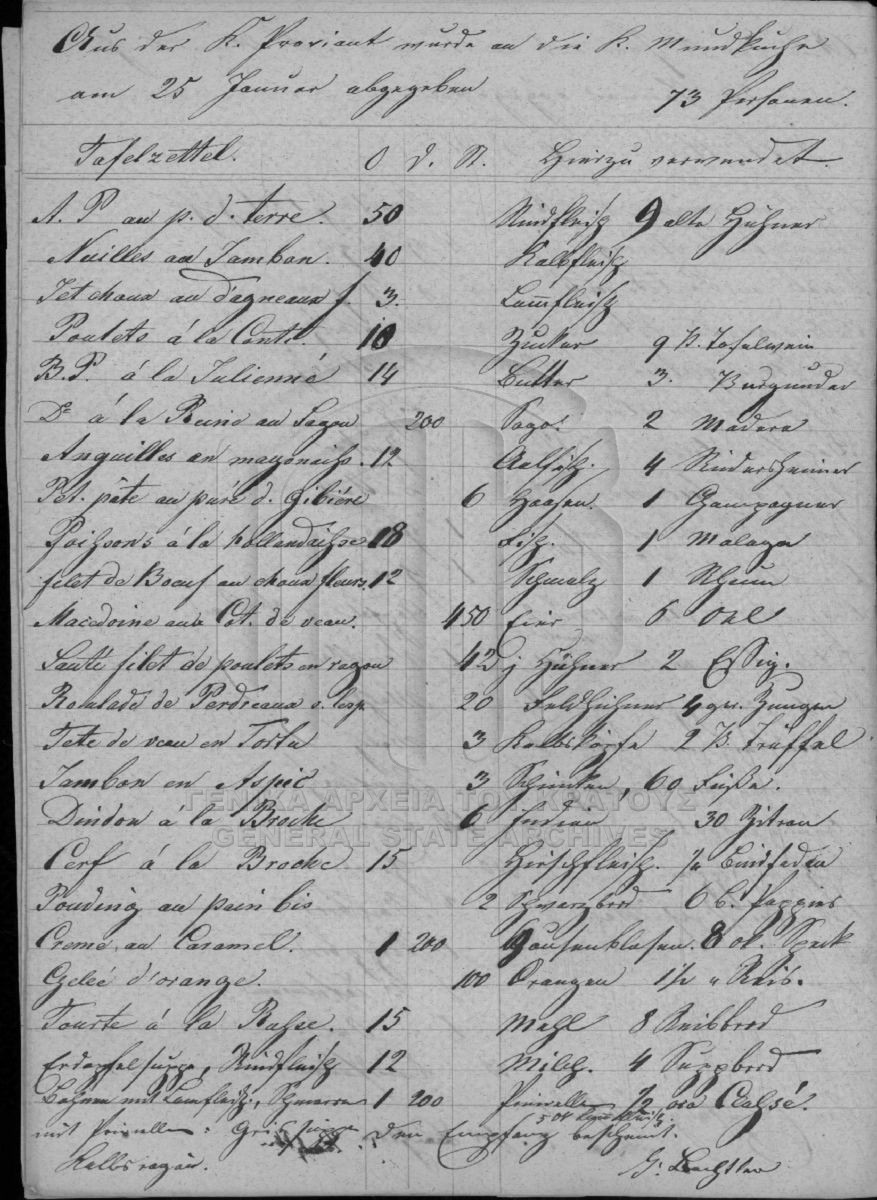 Aus der K. Proviant wurde an die K. Mundküche
am 25 Januar abgegeben 73 Personen.
Tafelzettel. O d. St. Hierzu verwendet.
A. P au p. d. terre 50 Rindfleisch 9 alte Hühner
Nuilles au Jambon. 40 Kalbfleisch
Jet choux au d'agneaux f. 3. Lammfleisch
Poulets á la Conti. 10 Zucker 9 B. Tafelwein
B.P. á la Julienné 14 Butter 3. Burgunder
Do á la Reine au Sagou 200 Sago. 2 Madera
Anguilles en mayonaihs. 12 Aalfisch. 4 Rüdersheimer
Pet. pâte au puré d. gibiére 6 Haasen. 1 Champagner
Poihsons á la hollendaihse 18 Fisch. 1 Malaga
filet de Boeuf au choux fleurs. 12 Schmalz 1 Rhum
Macedoine aux Cot. de veau. 450 Eier 6 Oel
Sauté filet de poulets en ragou 42 j Hühner 2 Essig.
Roulade de Perdreaux 20 Feldhühner 4 ger. Zungen
Tete de veau en Tortu 3 Kalbsköpfe 2 B. Trüffel
Jambon en Aspic 3 Schinken, 60 Füße.
ΓΕΝΙΚΑ ΑΡΧΕΙΑ ΤΟΥ ΚΡΑΤΟΥΣ
Dindon á la Broche 6 Indian 30 Zitron
GENERAL STATE ARCHIVES
Cerf á la Broche 15 Hirschfleisch. Bindfaden
Pouding au pain bis 2 Schwarzbrod 6 b. Pappier
Creme au Caramel. 1 200 Hausenblasen. 8 ok. Speck
Gelée d'orange. 100 Orangen 1 1/2 " Reis.
Tourte á la Ruhse. 15 Mehl 8 Reibbrod
Erdapfelsuppe, Rindfleisch 12 Milch. 4 Suppbrod
Bohnen mit Lamfleisch, Schmarrn 1 200 Prinellen 1/2 oca Caffé.
mit Prinellen: Griessuppe den Empfang bescheint.
Kalbsragou. G. Bechtler